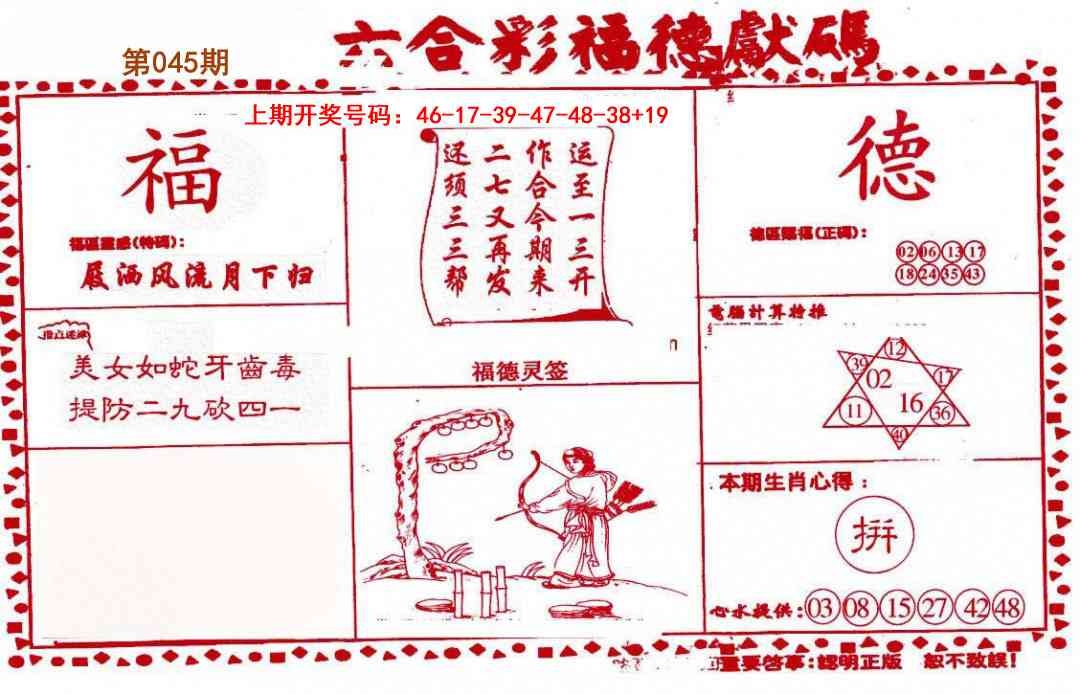 六合彩福德獻碼
第045期
上期开奖号码：46-17-39-47-48-38+19
福
福區靈感(特碼)：
屐洒风流月下归
美女如蛇牙齒毒
提防二九砍四一
运至一三开
作合今期来
二七又再发
还须三三帮
福德灵签
德
德區賜福(正碼)：
02 06 13 17
18 24 35 43
電腦計算特推
12
39 02 17
11 16 36
40
本期生肖心得：
拼
心水提供：03 08 15 27 42 48
重要啓事：認明正版 恕不致誤！